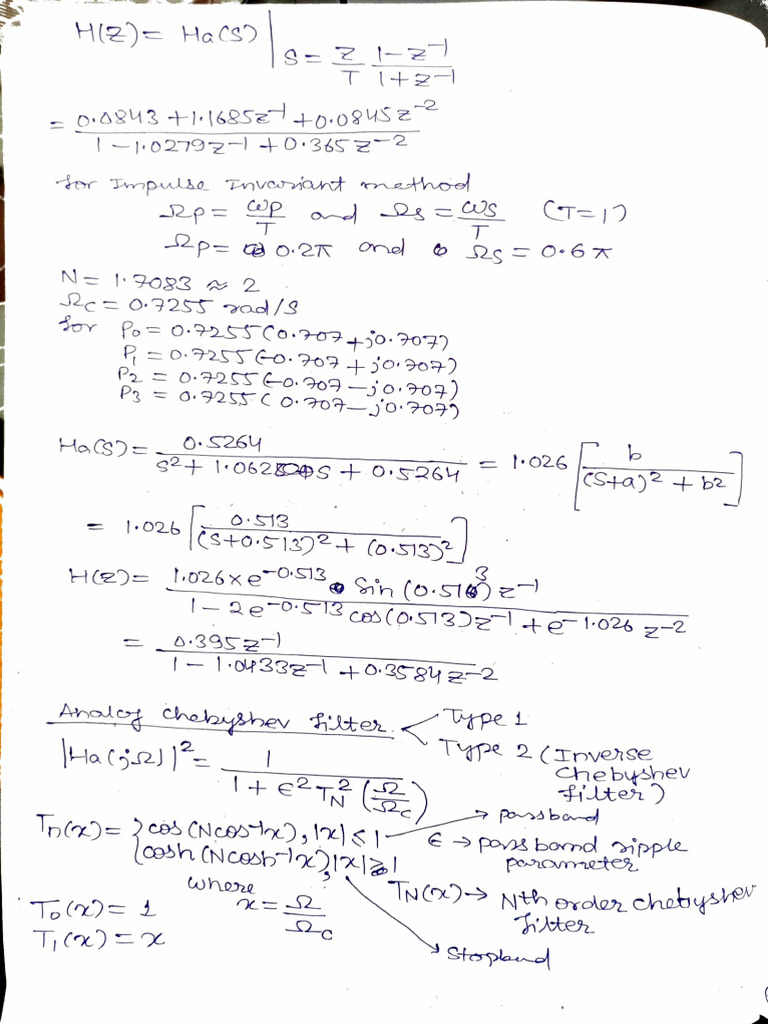 H(Z) = Ha(S) | S = Z/T (1-z^-1)/(1+z^-1)
= (0.0843 + 1.1685z^-1 + 0.0845z^-2)/(1 - 1.0279z^-1 + 0.365z^-2)
for Impulse Invariant method
Ωp = ωp/T and Ωs = ωs/T (T=1)
Ωp = 0.2π and Ωs = 0.6π
N = 1.7083 ≈ 2
Ωc = 0.7255 rad/s
for P0 = 0.7255(0.707 + j0.707)
P1 = 0.7255(-0.707 + j0.707)
P2 = 0.7255(-0.707 - j0.707)
P3 = 0.7255(0.707 - j0.707)
Ha(S) = 0.5264/(s^2 + 1.062 s + 0.5264) = 1.026 [b/((S+a)^2 + b^2)]
= 1.026 [0.513/((S+0.513)^2 + (0.513)^2)]
H(Z) = (1.026 x e^-0.513 sin(0.513) z^-1)/(1 - 2e^-0.513 cos(0.513)z^-1 + e^-1.026 z^-2)
= 0.395z^-1/(1 - 1.0433z^-1 + 0.3584z^-2)
Analog Chebyshev filter
Type 1
Type 2 (Inverse
chebyshev
filter)
|Ha(jΩ)|^2 = 1/(1 + ϵ^2 TN^2 (Ω/Ωc))
→ passband
Tn(x) = { cos(Ncos^-1x), |x| ≤ 1
{ cosh(Ncosh^-1x), |x| ≥ 1
ϵ → passband ripple
parameter
where
x = Ω/Ωc
TN(x) → Nth order chebyshev
filter
T0(x) = 1
T1(x) = x
→ stopband